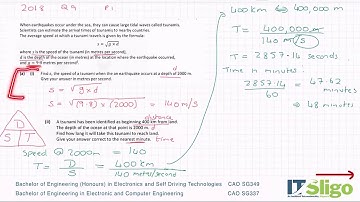 2018 Q9 P1
When earthquakes occur under the sea, they can cause large tidal waves called tsunamis.
Scientists can estimate the arrival times of tsunamis to nearby countries.
The average speed at which a tsunami travels is given by the formula:
s = √g × d
where s is the speed of the tsunami (in metres per second),
d is the depth of the ocean (in metres) at the location where the earthquake occurred,
and g = 9·8 metres per second².
(a) (i) Find s, the speed of a tsunami when the an earthquake occurs at a depth of 2000 m.
Give your answer in metres per second.
d
S = √g × d
S = √(9.8) × (2000) = 140 m/s
distance
(ii) A tsunami has been identified as beginning 400 km from land.
The depth of the ocean at that point is 2000 m. d
Find how long will it take this tsunami to reach land.
Give your answer correct to the nearest minute. time
D
S T
Speed @ 2000m = 140
T = D/S = 400km / 140 metre/second
400 km ⇔ 400,000 m
T = 400,000 m / 140 m/s
T = 2857.14 seconds
Time in minutes:
2857.14 / 60 = 47.62 minutes
⇒ 48 minutes
Bachelor of Engineering (Honours) in Electronics and Self Driving Technologies CAO SG349
Bachelor of Engineering in Electronic and Computer Engineering CAO SG337
IT Sligo